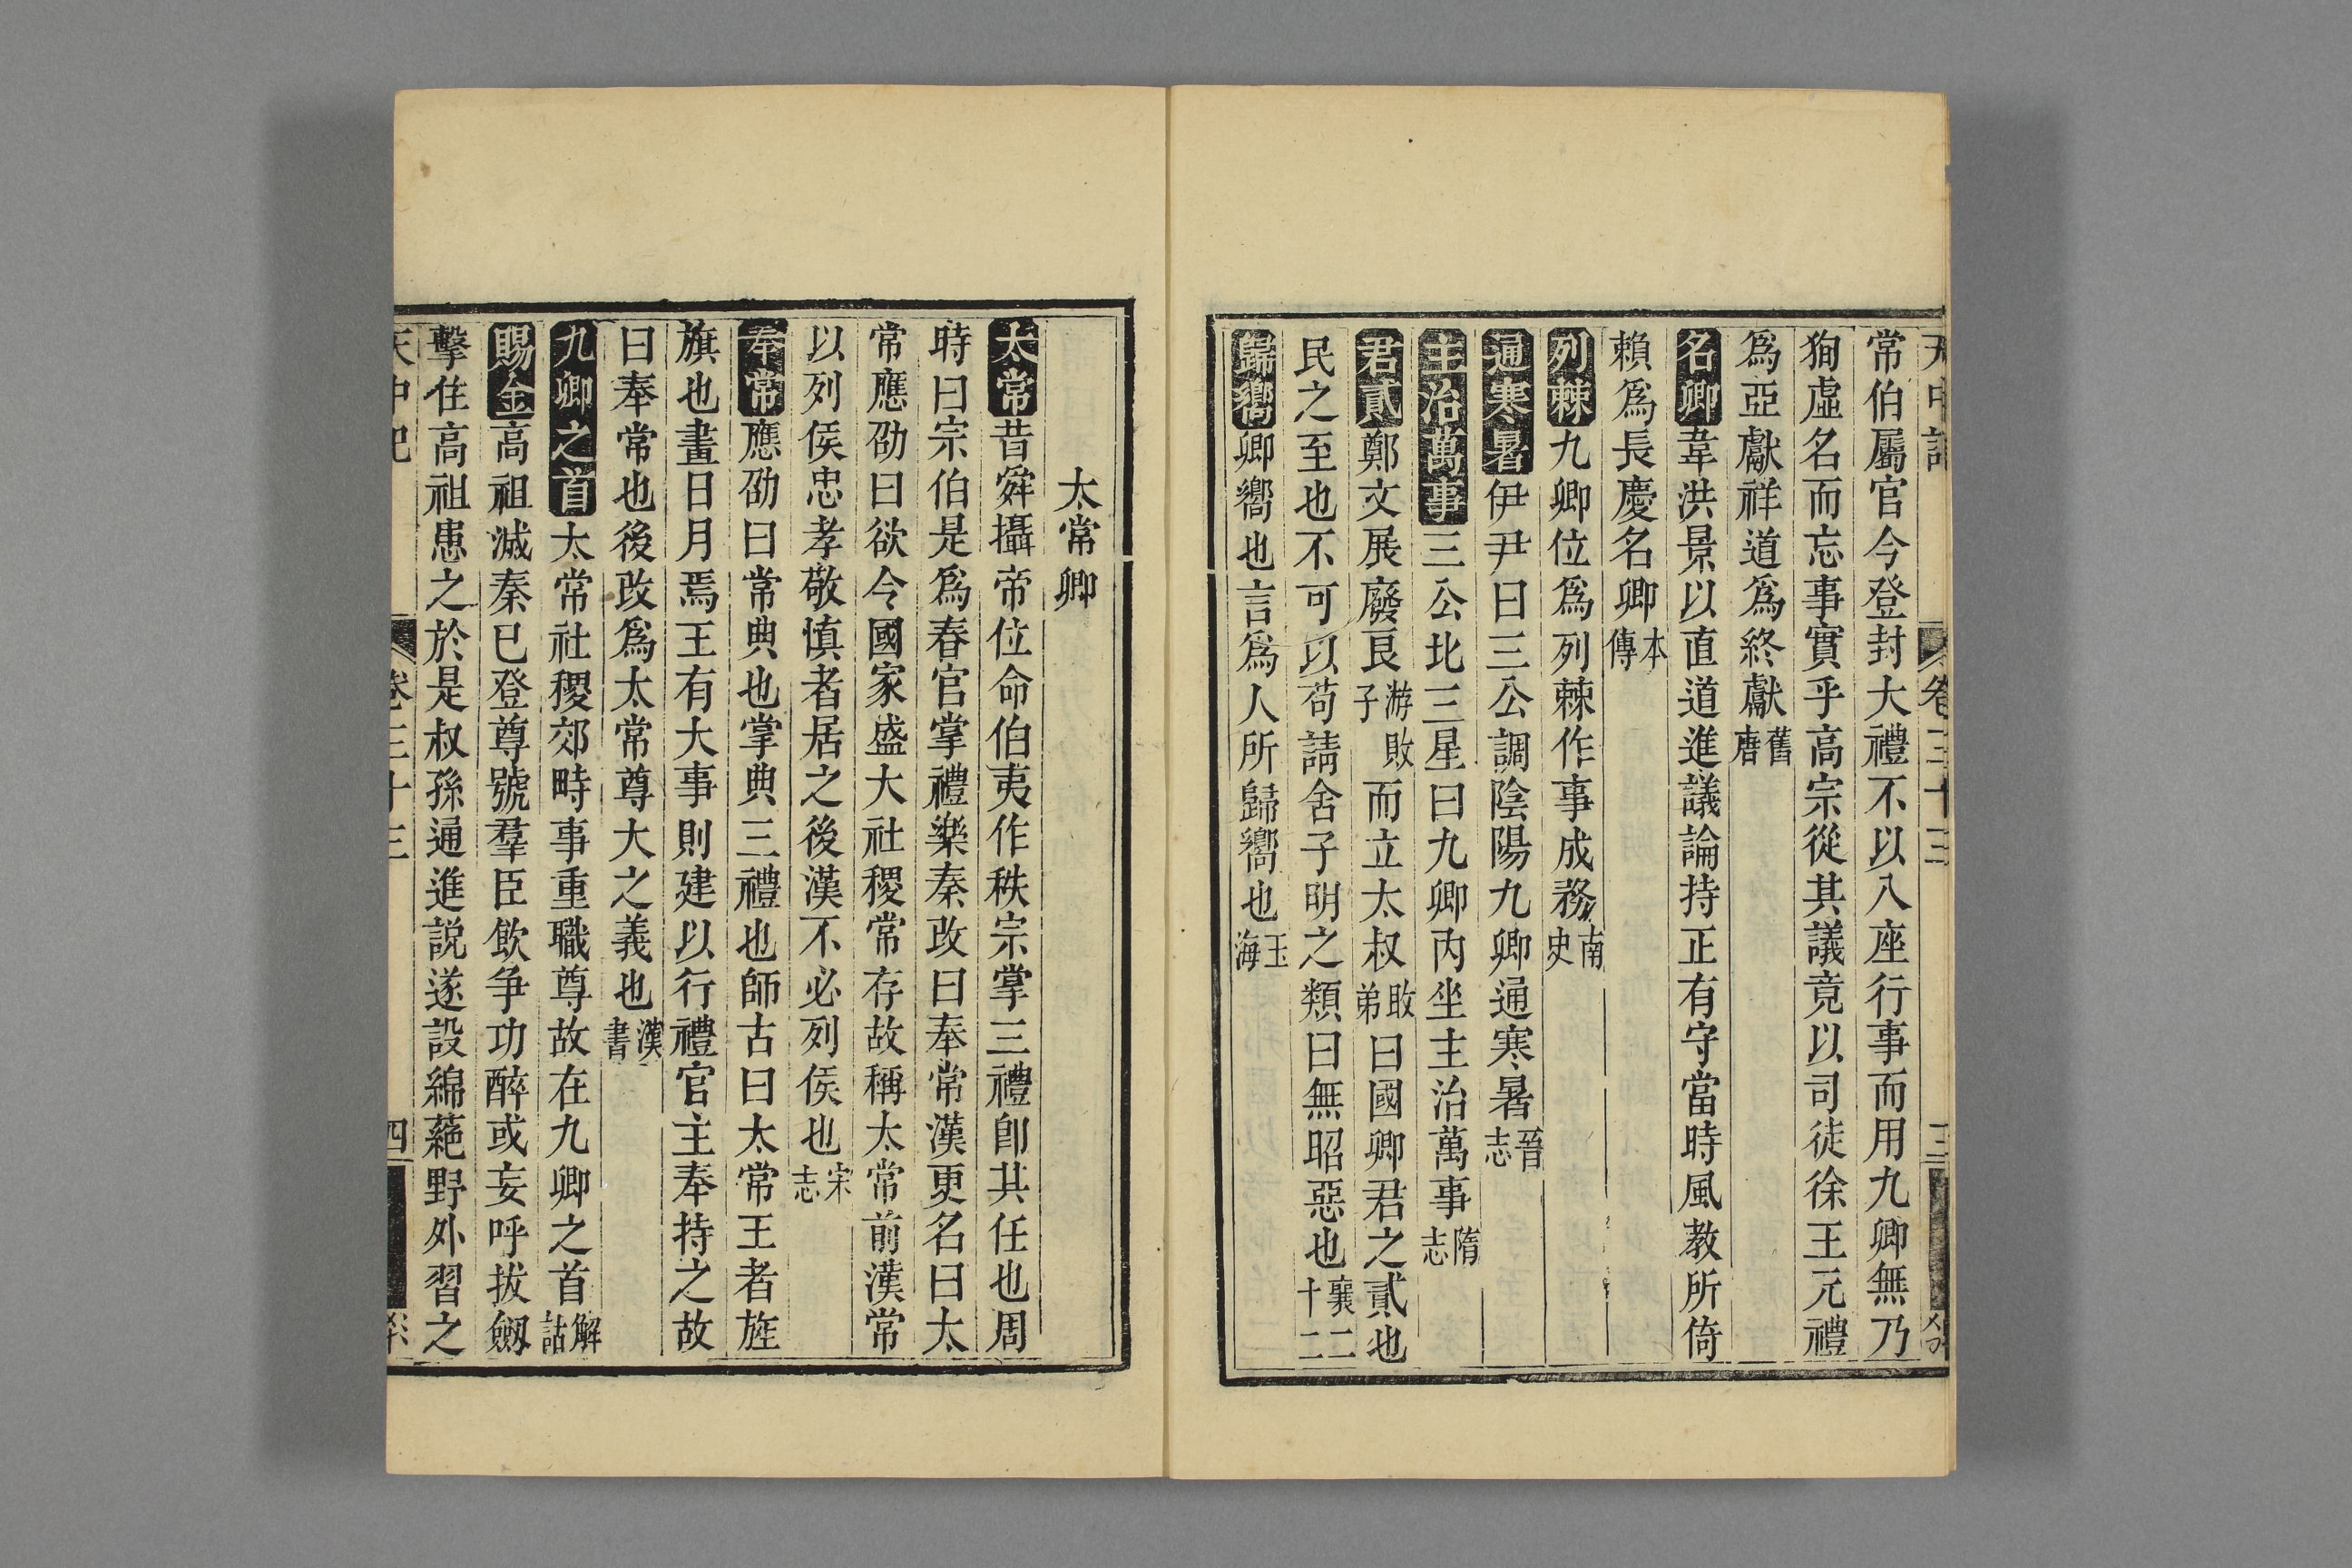 天中記 卷三十三 三
常伯屬官今登封大禮不以八座行事而用九卿無乃
狥虛名而忘事實乎高宗從其議竟以司徒徐王元禮
爲亞獻祥道爲終獻舊唐
名卿韋洪景以直道進議論持正有守當時風教所倚
賴爲長慶名卿本傳
列棘九卿位爲列棘作事成務南史
通寒暑伊尹曰三公調陰陽九卿通寒暑晉志
主治萬事三公北三星曰九卿內坐主治萬事隋志
君貳鄭文展廢良游子敗而立太叔敗弟曰國卿君之貳也
民之至也不可以苟請舍子明之類曰無昭惡也襄二十二
歸嚮卿嚮也言爲人所歸嚮也玉海
太常卿
太常昔舜攝帝位命伯夷作秩宗掌三禮卽其任也周
時曰宗伯是爲春官掌禮樂秦改曰奉常漢更名曰太
常應劭曰欲令國家盛大社稷常存故稱太常前漢常
以列侯忠孝敬慎者居之後漢不必列侯也宋志
奉常應劭曰常典也掌典三禮也師古曰太常王者旌
旗也畫日月焉王有大事則建以行禮官主奉持之故
曰奉常也後改爲太常尊大之義也漢書
九卿之首太常社稷郊畤事重職尊故在九卿之首解詁
賜金高祖滅秦已登尊號羣臣飲爭功醉或妄呼拔劔
擊住高祖患之於是叔孫通進説遂設綿蕝野外習之
天中記 卷三十三 四